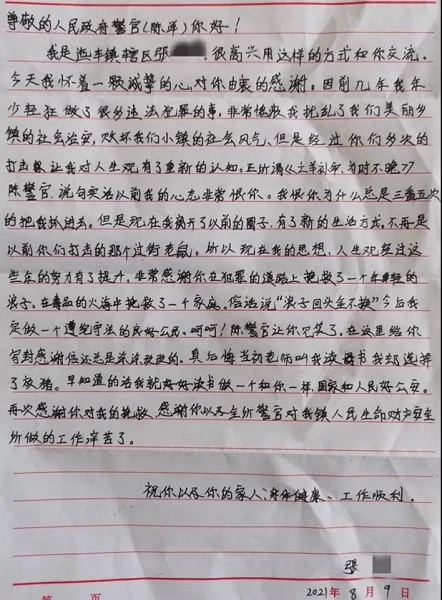 尊敬的人民政府警官(陈洋)你好!
我是迤车镇辖区张 。很高兴用这样的方式和你交流。
今天我怀着一颗诚挚的心,对你由衷的感谢。因前几年我年
少轻狂做了很多违法犯罪的事,非常愧疚我扰乱了我们美丽乡
镇的社会治安,败坏我们小镇的社会风气,但是经过你们多次的
打击 让我对人生观有了重新的认知。正所谓《亡羊补牢,为时不晚》?
陈警官,说句实话以前我的心态非常恨你。我恨你为什么总是三番五次
的把我抓进去。但是现在我离开了以前的圈子,有了新的生活方式,不再是
以前你们打击的那个过街老鼠。所以现在我的思想,人生观经过这
些年的努力有了提升,非常感谢你在犯罪的道路上挽救了一个年轻的
浪子。在毒品的火海中挽救了一个家庭。俗话说“浪子回头金不换”今后我
定做一个遵纪守法的良好公民。呵呵!陈警官让你见笑了。在这里给你
写封感谢信还总是涂涂改改的。真后悔当初老师叫我读书我却选择
了放猪。早知道的话我就好好读书做一个和你一样,国家和人民好公安。
再次感谢你对我的挽救,感谢你以及全所警官对我镇人民生命财产安全
所做的工作,辛苦了。
祝你以及你的家人:身体健康、工作顺利。
張
2021年8月9日
第 页